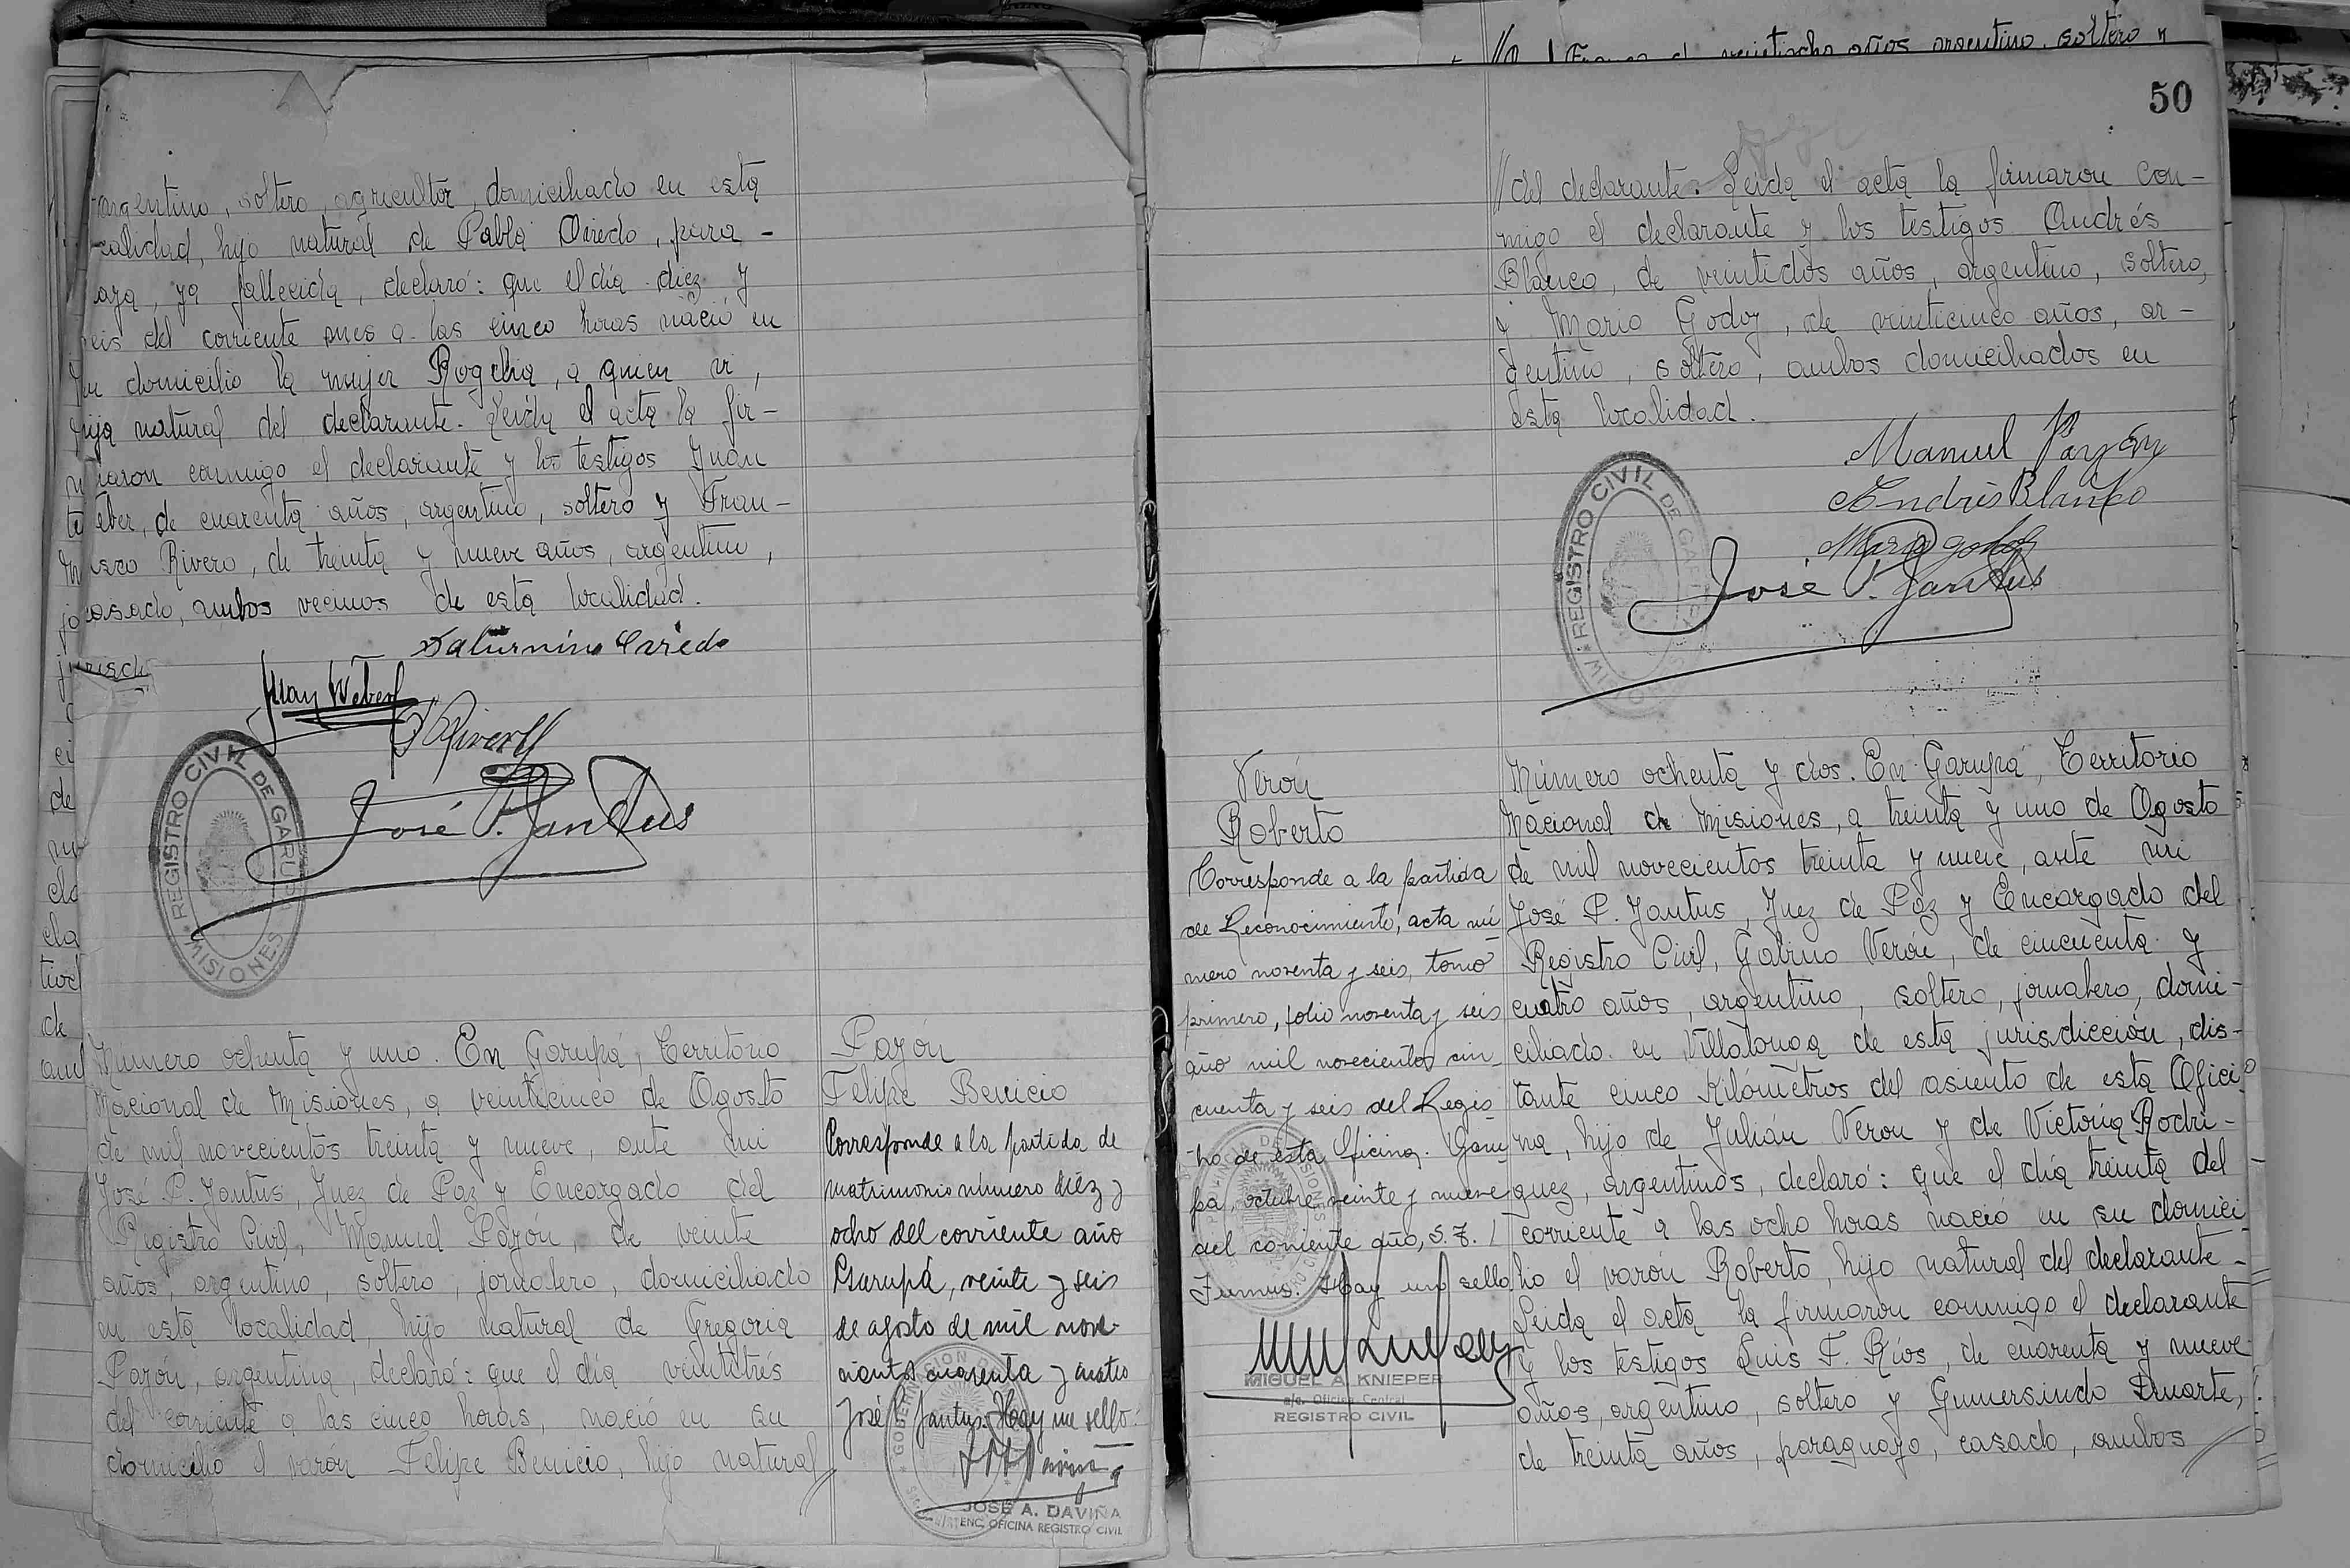 argentino, soltero, agricultor, domiciliado en esta
calidad, hijo natural de Pabla Oviedo, para-
aya, ya fallecida, declaró: que el día diez y
seis del corriente mes a las cinco horas nació en
su domicilio la mujer Rogelia, a quien vi,
hija natural del declarante. Leída el acta la fir-
maron conmigo el declarante y los testigos Juan
eber, de cuarenta años, argentino, soltero y Fran-
isco Rivero, de treinta y nueve años, argentino,
casado, ambos vecinos de esta localidad.
Saturnino Oviedo
Juan Weber
F Rivero
José P. Jantus
REGISTRO CIVIL DE GARUPA
MISIONES
Número ochenta y uno. En Garupá, Territorio
Nacional de Misiones, a veinticinco de Agosto
de mil novecientos treinta y nueve, ante mi
José P. Jantus, Juez de Paz y Encargado del
Registro Civil, Manuel Payón, de veinte
años, argentino, soltero, jornalero, domiciliado
en esta localidad, hijo natural de Gregoria
Payón, argentina, declaró: que el día veintitrés
del corriente a las cinco horas, nació en su
domicilio el varón Felipe Benicio, hijo natural //
Payón
Felipe Benicio
Corresponde a la partida de
matrimonio número diez y
ocho del corriente año
Garupá, veinte y seis
de agosto de mil nove-
cientos cuarenta y cuatro
José P. Jantus. Hay un sello.
JOSE A. DAVIÑA
ENC. OFICINA REGISTRO CIVIL
50
// del declarante. Leída el acta la firmaron con-
migo el declarante y los testigos Andrés
Blanco, de veintidos años, argentino, soltero,
y Mario Godoy, de veinticinco años, ar-
gentino, soltero, ambos domiciliados en
esta localidad.
Manuel Payón
Andrés Blanco
Mario Godoy
José P. Jantus
REGISTRO CIVIL DE GA
Verón
Roberto
Corresponde a la partida
de Reconocimiento, acta nú
mero noventa y seis, tomo
primero, folio noventa y seis
año mil novecientos cin
cuenta y seis del Regis
tro de esta Oficina. Garu
pá, octubre veinte y nueve
del corriente año, S. Z.
Hay un sello
MIGUEL A. KNIEPER
a/c. Oficina Central
REGISTRO CIVIL
Número ochenta y dos. En Garupá, Territorio
Nacional de Misiones, a treinta y uno de Agosto
de mil novecientos treinta y nueve, ante mi
José P. Jantus, Juez de Paz y Encargado del
Registro Civil, Gabino Verón, de cincuenta y
cuatro años, argentino, soltero, jornalero, domi-
ciliado en Villalonga de esta jurisdicción, dis-
tante cinco Kilómetros del asiento de esta Ofici
na, hijo de Julián Veron y de Victoria Rodri-
guez, argentinos, declaró: que el día treinta del
corriente a las ocho horas nació en su domici
lio el varón Roberto, hijo natural del declarante-
Leída el acta la firmaron conmigo el declarante
y los testigos Luis F. Ríos, de cuarenta y nueve
años, argentino, soltero y Gumersindo Duarte,
de treinta años, paraguayo, casado, ambos //